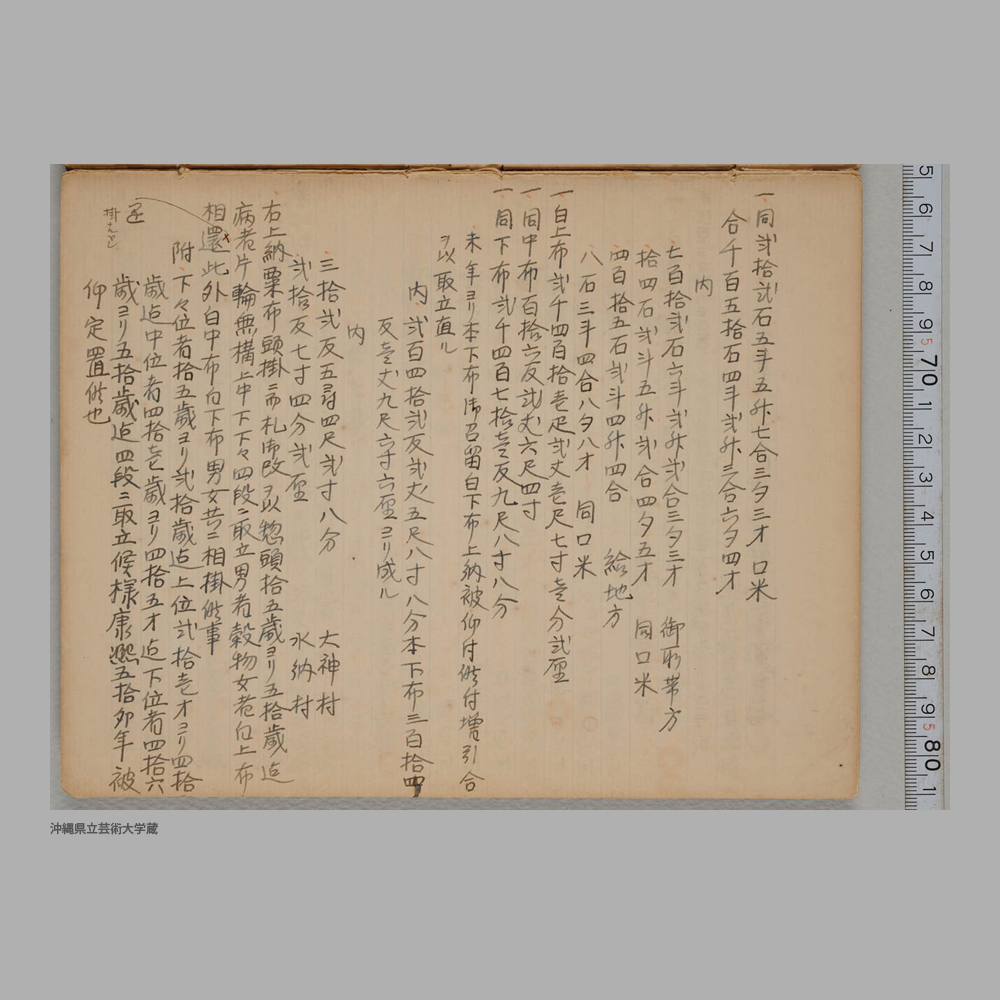 一同弐拾弐石五斗五升七合三夕三才 口米
合千百五拾石四斗弐升三合六夕四才
内
七百拾弐石六斗弐升弐合三夕三才 御所帯方
拾四石弐斗五升弐合四夕五才 同口米
四百拾五石弐斗四升四合 給地方
八石三斗四合八夕八才 同口米
一白上布弐千四百拾壱疋弐丈壱尺七寸壱分弐厘
一同中布百拾六反弐丈六尺四寸
一同下布弐千四百七拾壱反九尺八寸八分
未年ヨリ本下布御召留白下布上納被仰付候付増引合
ヲ以取立直ル
内 弐百四拾弐反弐丈五尺八寸八分本下布三百拾四
反壱丈九尺六寸六厘ヨリ成ル
内
三拾弐反五尋四尺弐寸八分 大神村
弐拾反七寸四分弐厘 水納村
右上納粟布頭掛ニ而札御改ヲ以惣頭拾五歳ヨリ五拾歳迠
病者片輪無構上中下下々四段ニ取立男者穀物女者白上布
相還此外白中布白下布男女共ニ相掛候事
附 下々位者拾五歳ヨリ弐拾歳迠上位弐拾壱才ヨリ四拾
歳迠中位者四拾壱歳ヨリ四拾五才迠下位者四拾六
歳ヨリ五拾歳迠四段ニ取立候様康熙五拾卯年被
仰定置候也